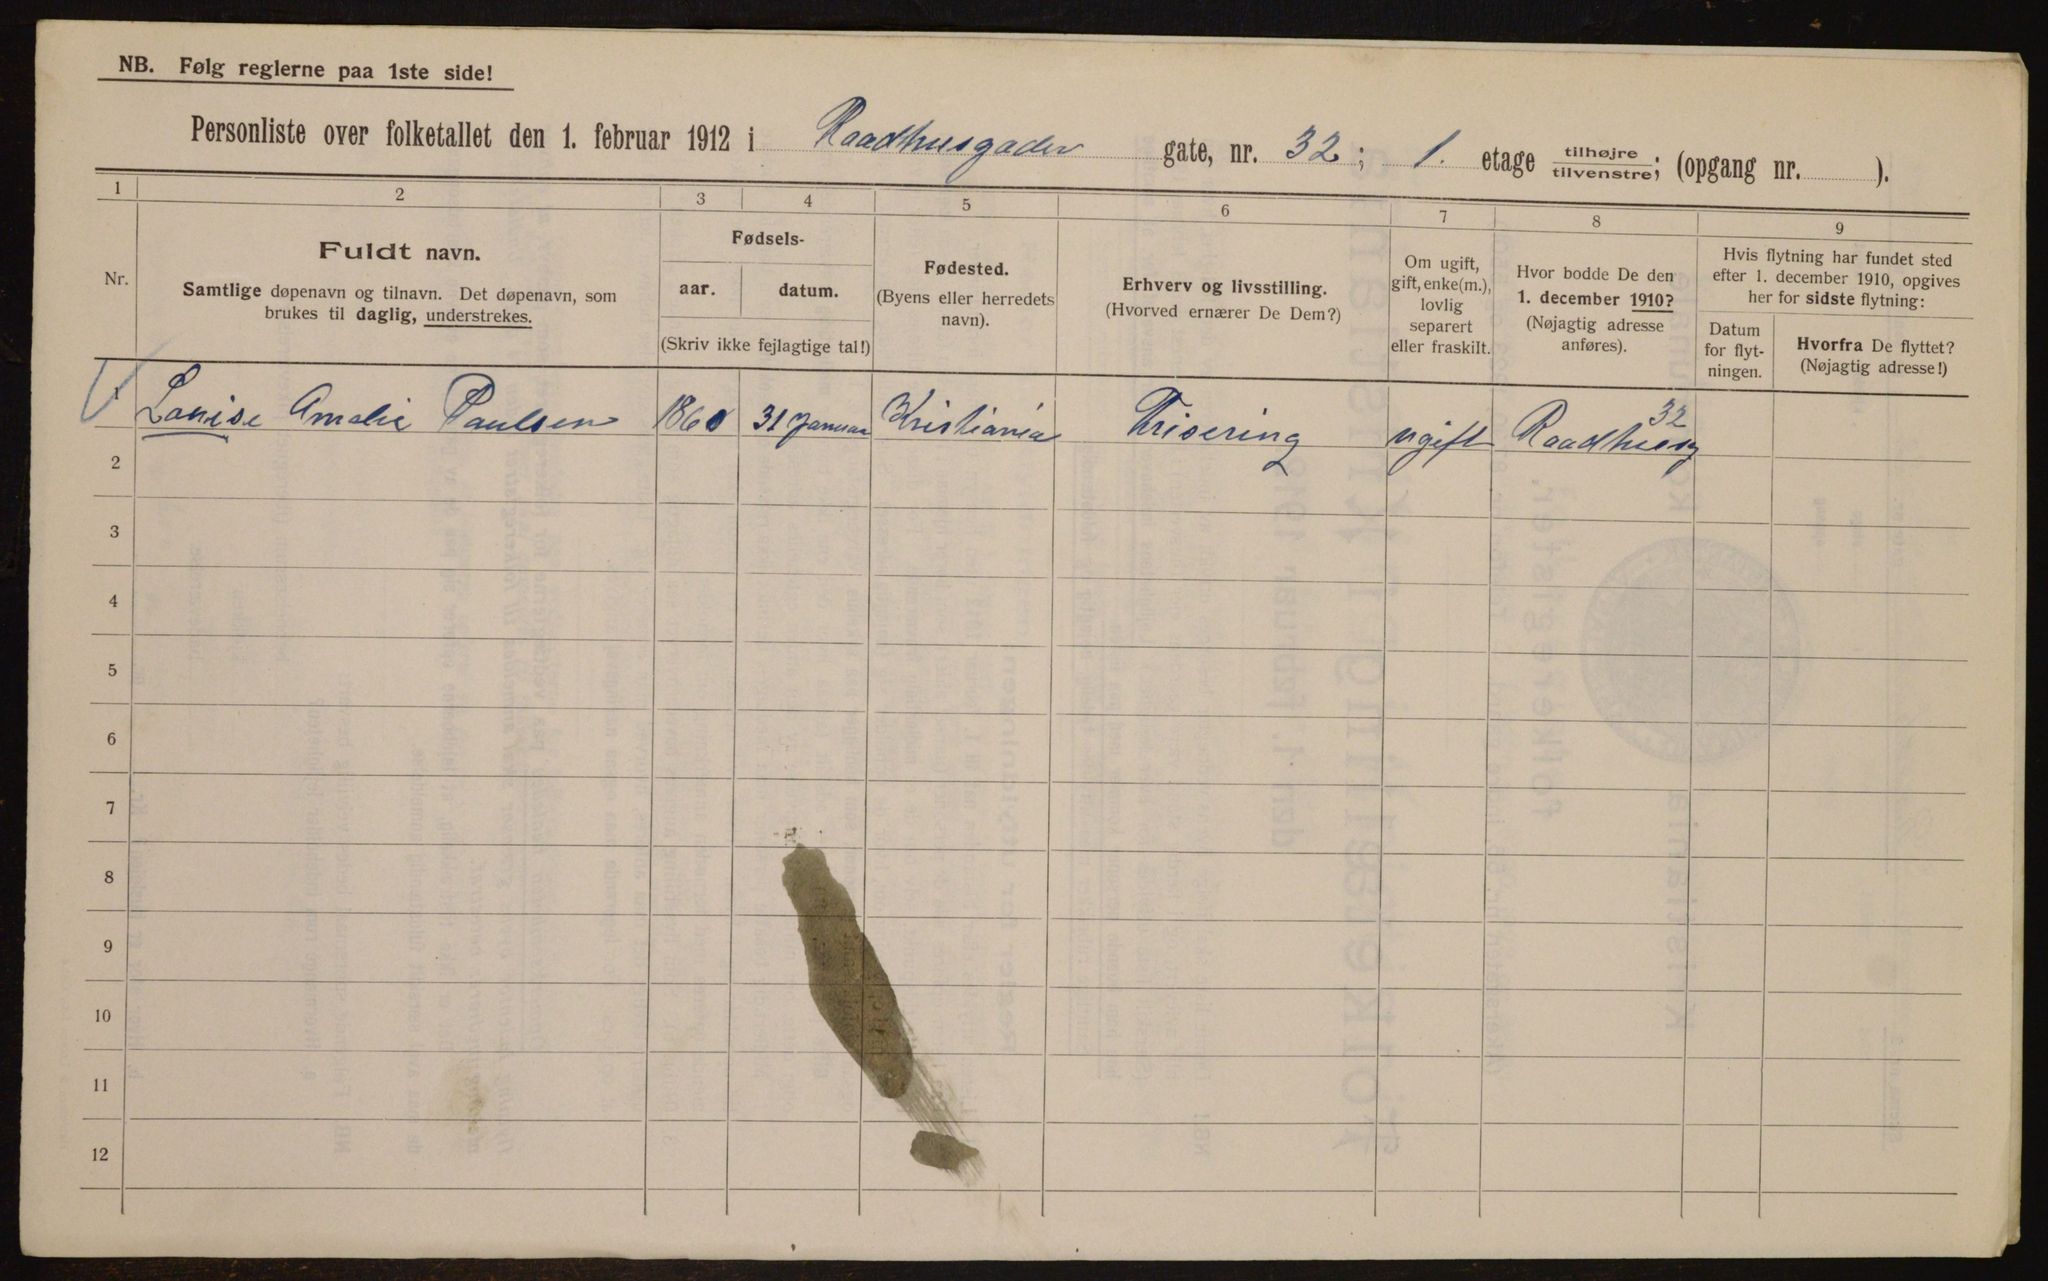 NB. Følg reglerne paa 1ste side!
Personliste over folketallet den 1. februar 1912 i Raadhusgaden gate, nr. 32; 1. etage tilhøjre/tilvenstre; (opgang nr. ).
1 2 3 4 5 6 7 8 9
Nr.
Fuldt navn.
Samtlige døpenavn og tilnavn. Det døpenavn, som
brukes til daglig, understrekes.
Fødsels-
aar. datum.
(Skriv ikke fejlagtige tal!)
Fødested.
(Byens eller herredets
navn).
Erhverv og livsstilling.
(Hvorved ernærer De Dem?)
Om ugift,
gift, enke(m.),
lovlig
separert
eller fraskilt.
Hvor bodde De den
1. december 1910?
(Nøjagtig adresse
anføres).
Hvis flytning har fundet sted
efter 1. december 1910, opgives
her for sidste flytning:
Datum
for flyt-
ningen.
Hvorfra De flyttet?
(Nøjagtig adresse!)
1 Louise Amalie Paulsen 1860 31 Januar Kristiania Frisering ugift Raadhusg 32
2
3
4
5
6
7
8
9
10
11
12